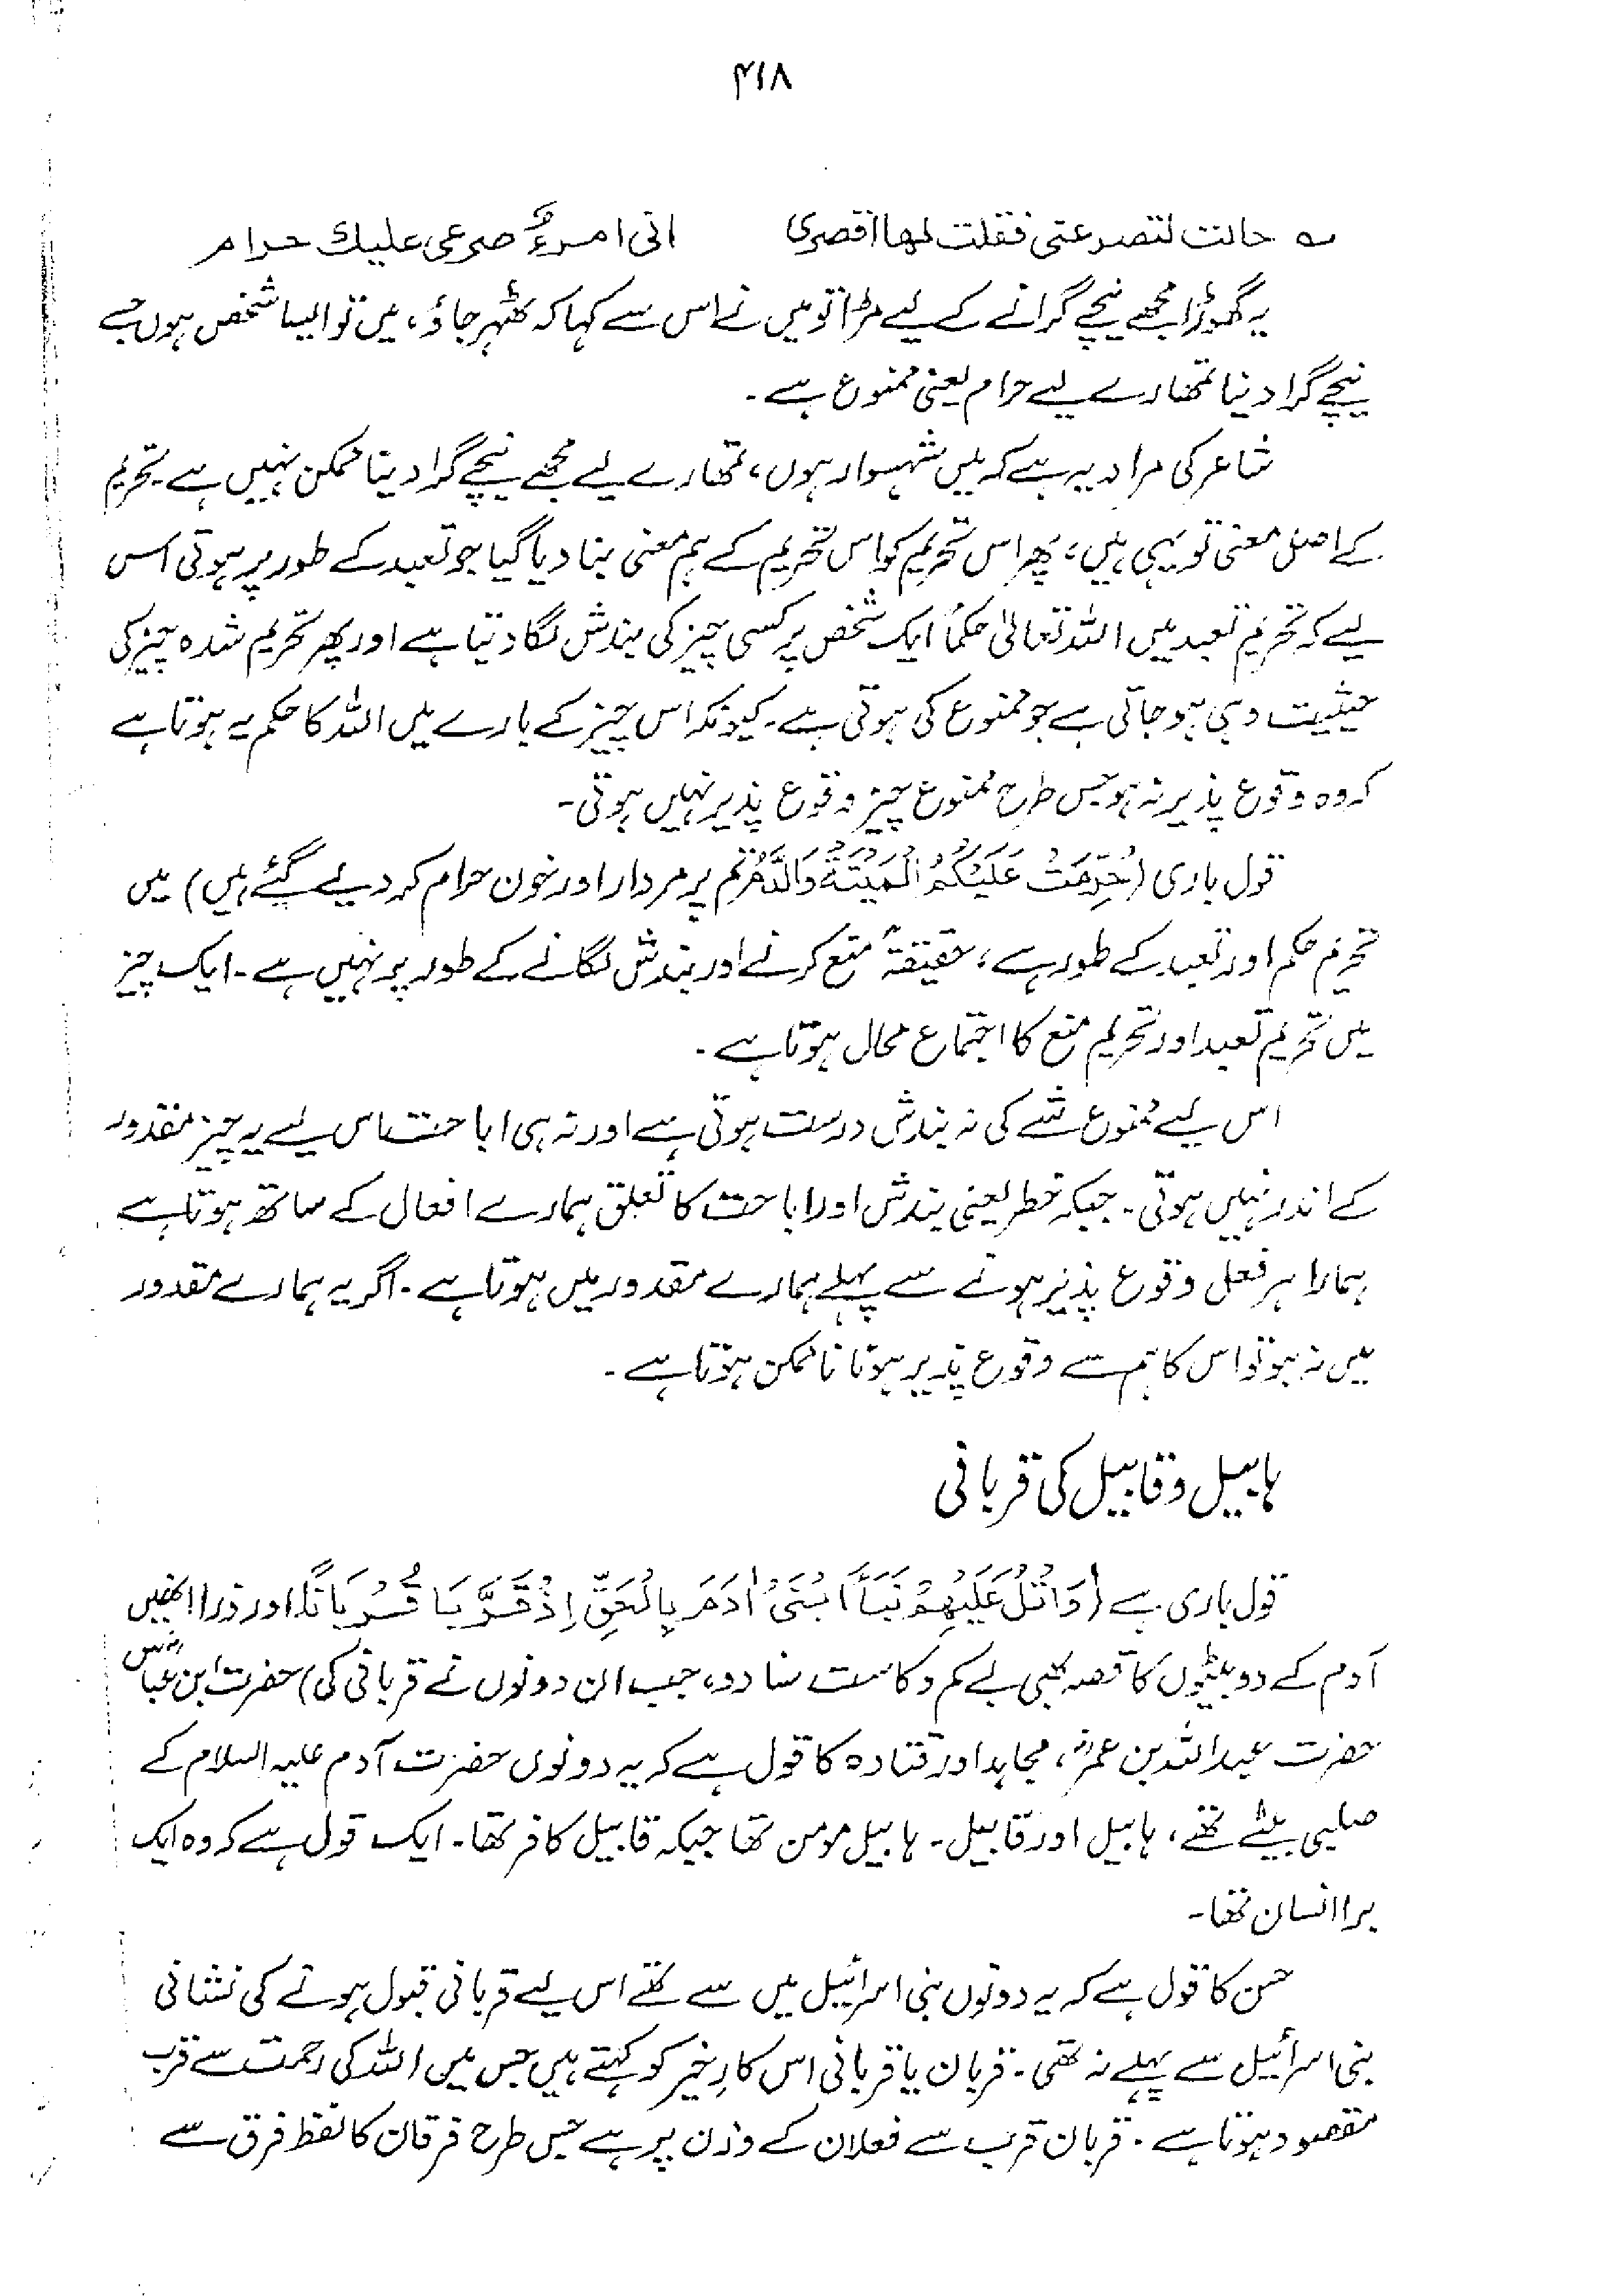 ۴۱۸
؎ حالت لتصرعنی فقلت لها اقصری انی امرءٌ صرعی علیك حرام
یہ گھوڑا مجھے نیچے گرانے کے لیے مڑا تو میں نے اس سے کہا کہ ٹھہر جاؤ، میں تو ایسا شخص ہوں جسے
نیچے گرا دینا تمھارے لیے حرام یعنی ممنوع ہے۔
شاعر کی مراد یہ ہے کہ میں شہسوار ہوں، تمھارے لیے مجھے نیچے گرا دینا ممکن نہیں ہے۔ تحریم
کے اصل معنی تو یہی ہیں، پھر اس تحریم کو اس تحریم کے ہم معنی بنا دیا گیا جو تعبد کے طور پر ہوتی اس
لیے کہ تحریم تعبد میں اللہ تعالیٰ حکماً ایک شخص پر کسی چیز کی بندش لگا دیتا ہے اور پھر تحریم شدہ چیز کی
حیثیت وہی ہو جاتی ہے جو ممنوع کی ہوتی ہے۔ کیونکہ اس چیز کے بارے میں اللہ کا حکم یہ ہوتا ہے
کہ وہ وقوع پذیر نہ ہو جس طرح ممنوع چیز وقوع پذیر نہیں ہوتی۔
قول باری (حُرِّمَتْ عَلَيْكُمُ الْمَيْتَةُ وَالدَّمُ تم پر مردار اور خون حرام کر دیے گئے ہیں) میں
تحریم حکم اور تعبد کے طور ہے، حقیقۃً منع کرنے اور بندش لگانے کے طور پر نہیں ہے۔ ایک چیز
میں تحریم تعبد اور تحریم منع کا اجتماع محال ہوتا ہے۔
اس لیے ممنوع شے کی نہ بندش درست ہوتی ہے اور نہ ہی اباحت اس لیے یہ چیز مقدور
کے اندر نہیں ہوتی۔ جبکہ خطر یعنی بندش اور اباحت کا تعلق ہمارے افعال کے ساتھ ہوتا ہے
ہمارا ہر فعل وقوع پذیر ہونے سے پہلے ہمارے مقدور میں ہوتا ہے۔ اگر یہ ہمارے مقدور
میں نہ ہو تو اس کا ہم سے وقوع پذیر ہونا ناممکن ہوتا ہے۔
ہابیل و قابیل کی قربانی
قول باری ہے (وَاتْلُ عَلَيْهِمْ نَبَأَ ابْنَيْ اٰدَمَ بِالْحَقِّ اِذْ قَرَّبَا قُرْبَانًا اور ذرا انھیں
آدم کے دو بیٹوں کا قصہ بھی بے کم و کاست سنا دو، جب ان دونوں نے قربانی کی) حضرت ابن عباسؓ
حضرت عبداللہ بن عمرؓ، مجاہد اور قتادہ کا قول ہے کہ یہ دونوں حضرت آدم علیہ السلام کے
صلبی بیٹے تھے، ہابیل اور قابیل۔ ہابیل مومن تھا جبکہ قابیل کافر تھا۔ ایک قول ہے کہ وہ ایک
برا انسان تھا۔
حسن کا قول ہے کہ یہ دونوں بنی اسرائیل میں سے تھے اس لیے قربانی قبول ہونے کی نشانی
بنی اسرائیل سے پہلے نہ تھی۔ قربان یا قربانی اس کارِ خیر کو کہتے ہیں جس میں اللہ کی رحمت سے قرب
مقصود ہوتا ہے۔ قربان قرب سے فعلان کے وزن پر ہے جس طرح فرقان کا لفظ فرق سے